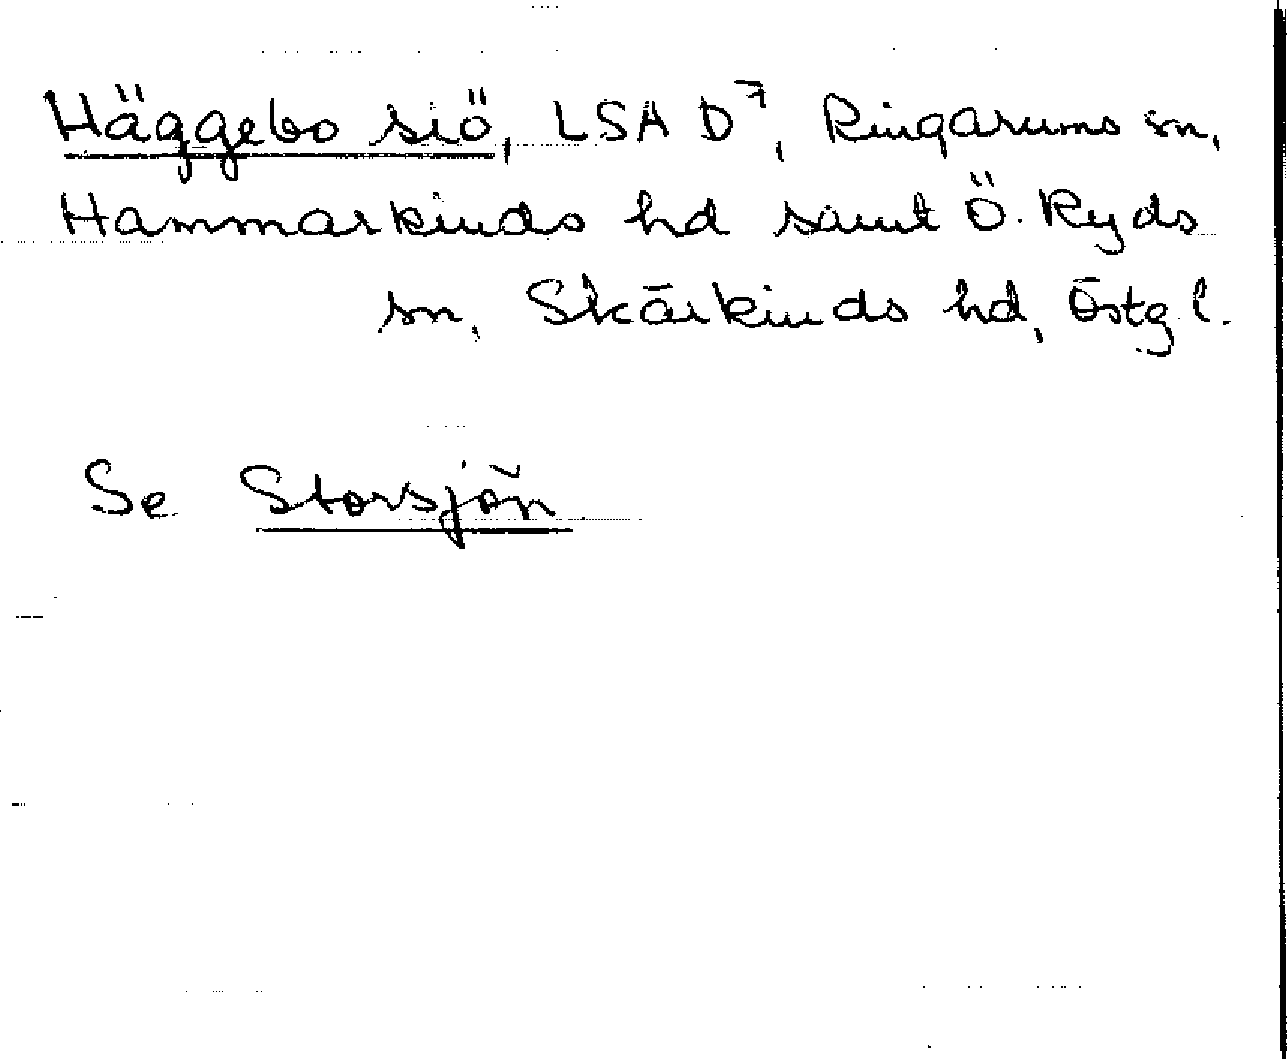 Häggebo siö, LSA D⁷, Ringarums sn,
Hammarkinds hd samt Ö. Ryds
sn, Skärkinds hd, Östg l.
Se Storsjön